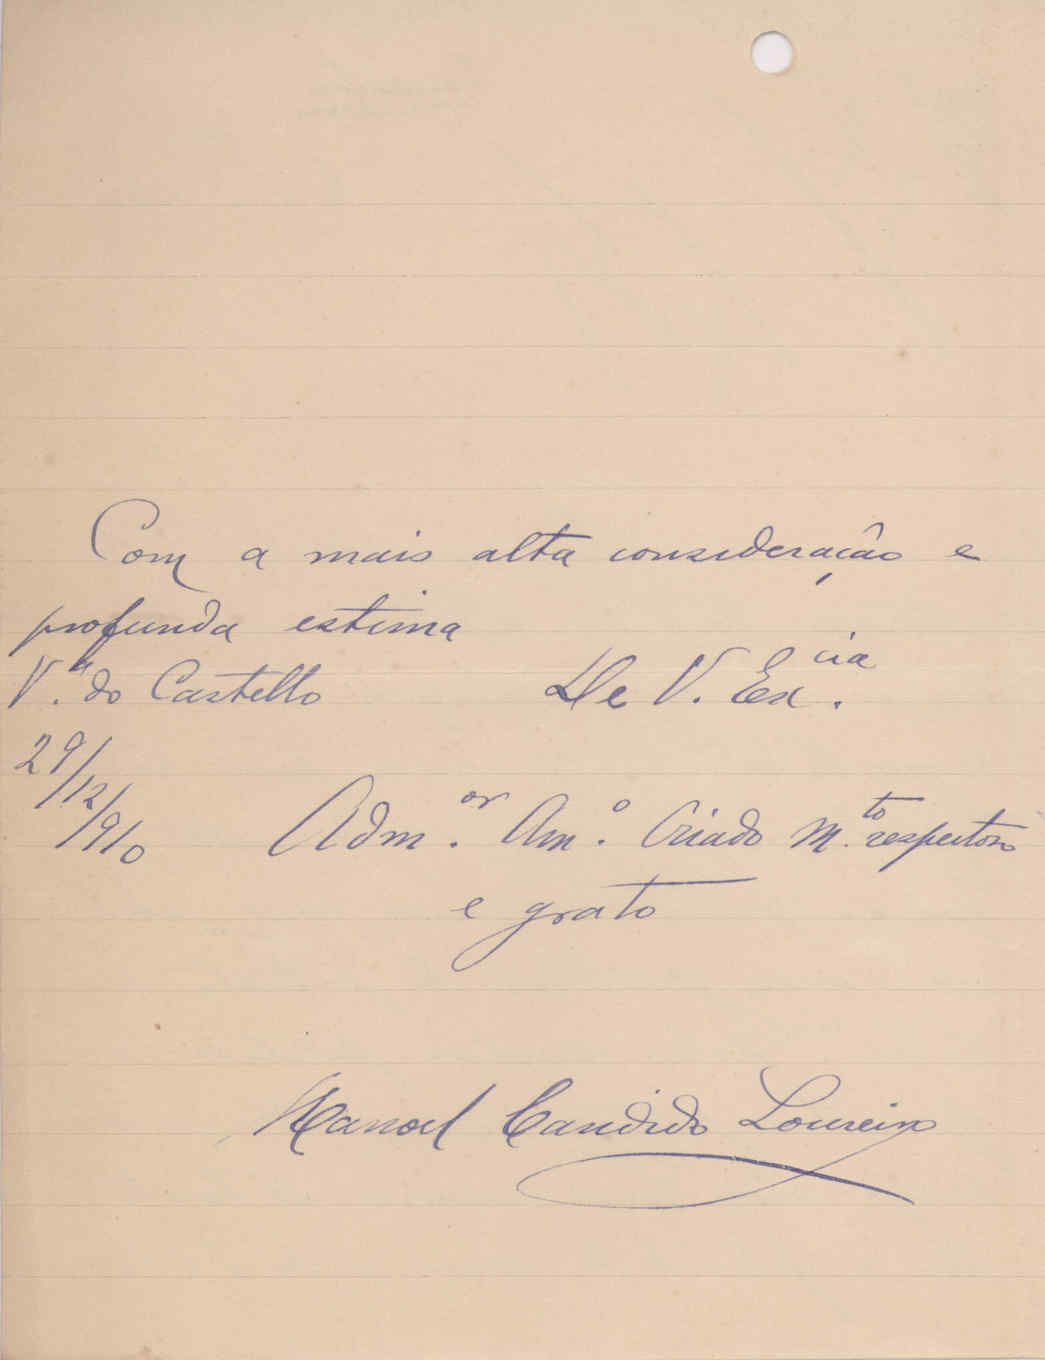 Com a mais alta consideração e
profunda estima
V.ª do Castello De V. Ex.cia
29/12/910
Adm.or Am.º Criado M.to respeitoso
e grato
Manoel Candido Loureiro